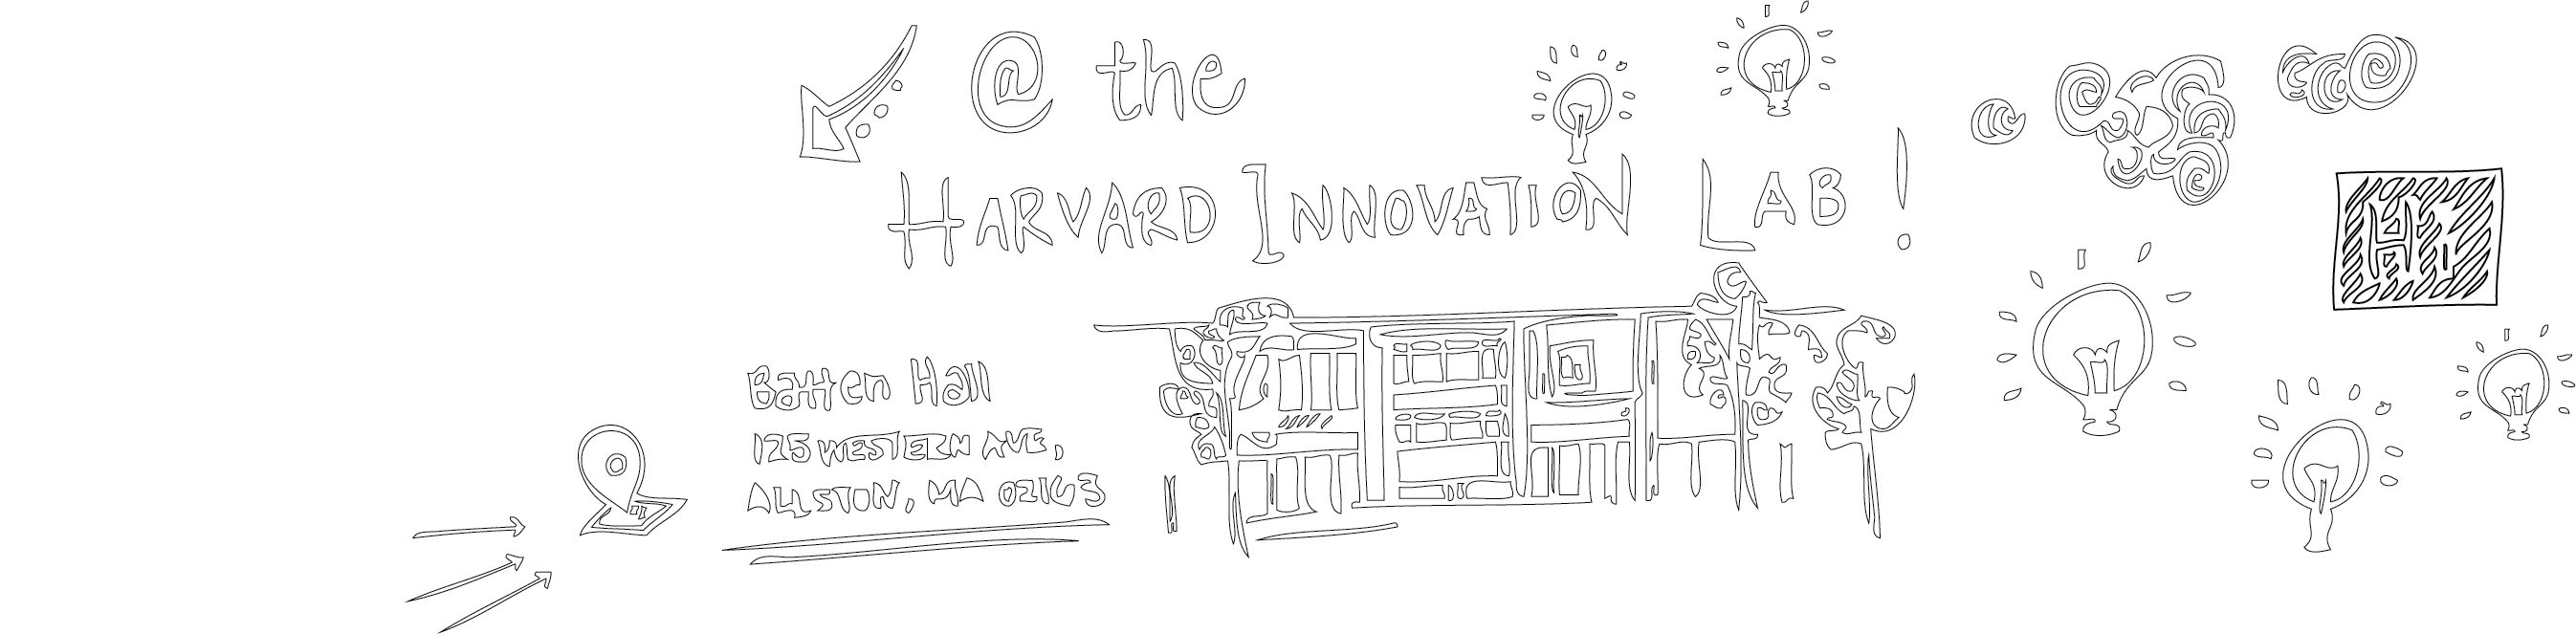 @ the
HARVARD INNOVATION LAB!
Hi
Batten Hall
125 WESTERN AVE,
ALLSTON, MA 02163